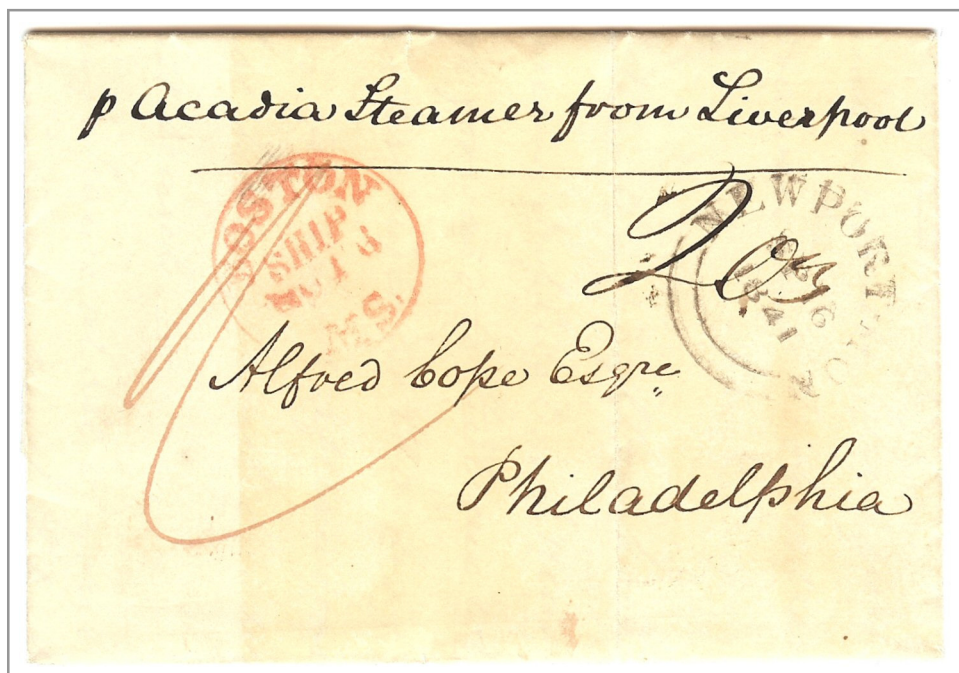 p Acadia Steamer from Liverpool
BOSTON
SHIP
MS.
NEWPORT-MON
1841
Alfred Cope Esqre
Philadelphia